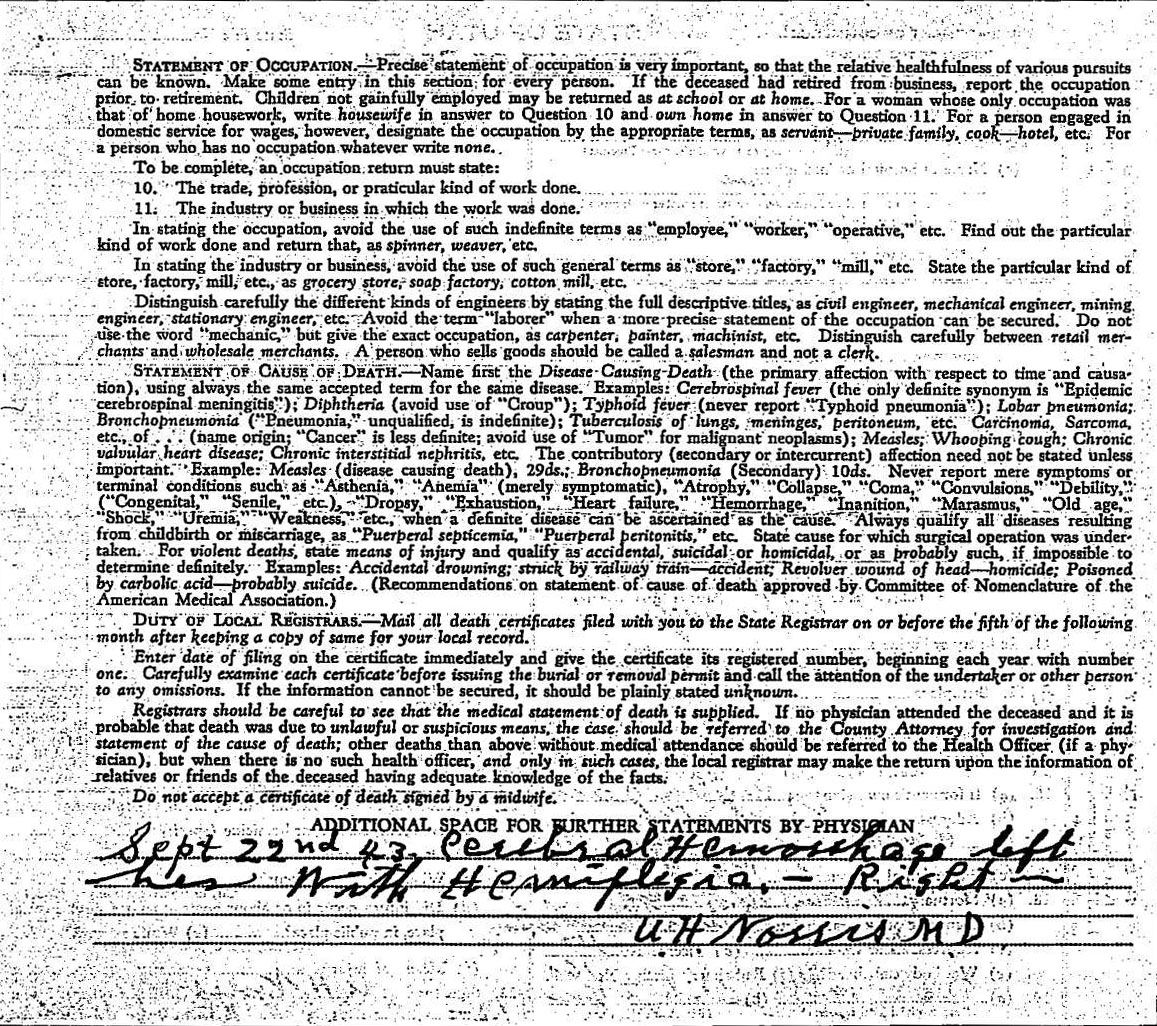 STATEMENT OF OCCUPATION.—Precise statement of occupation is very important, so that the relative healthfulness of various pursuits
can be known. Make some entry in this section for every person. If the deceased had retired from business, report the occupation
prior to retirement. Children not gainfully employed may be returned as at school or at home. For a woman whose only occupation was
that of home housework, write housewife in answer to Question 10 and own home in answer to Question 11. For a person engaged in
domestic service for wages, however, designate the occupation by the appropriate terms, as servant—private family, cook—hotel, etc. For
a person who has no occupation whatever write none.
To be complete, an occupation return must state:
10. The trade, profession, or praticular kind of work done.
11. The industry or business in which the work was done.
In stating the occupation, avoid the use of such indefinite terms as "employee," "worker," "operative," etc. Find out the particular
kind of work done and return that, as spinner, weaver, etc.
In stating the industry or business, avoid the use of such general terms as "store," "factory," "mill," etc. State the particular kind of
store, factory, mill, etc., as grocery store, soap factory, cotton mill, etc.
Distinguish carefully the different kinds of engineers by stating the full descriptive titles, as civil engineer, mechanical engineer, mining
engineer, stationary engineer, etc. Avoid the term "laborer" when a more precise statement of the occupation can be secured. Do not
use the word "mechanic," but give the exact occupation, as carpenter, painter, machinist, etc. Distinguish carefully between retail mer-
chants and wholesale merchants. A person who sells goods should be called a salesman and not a clerk.
STATEMENT OF CAUSE OF DEATH.—Name first the Disease-Causing-Death (the primary affection with respect to time and causa-
tion), using always the same accepted term for the same disease. Examples: Cerebrospinal fever (the only definite synonym is "Epidemic
cerebrospinal meningitis"); Diphtheria (avoid use of "Croup"); Typhoid fever (never report "Typhoid pneumonia"); Lobar pneumonia;
Bronchopneumonia ("Pneumonia," unqualified, is indefinite); Tuberculosis of lungs, meninges, peritoneum, etc. Carcinoma, Sarcoma,
etc., of . . . (name origin; "Cancer" is less definite; avoid use of "Tumor" for malignant neoplasms); Measles; Whooping cough; Chronic
valvular heart disease; Chronic interstitial nephritis, etc. The contributory (secondary or intercurrent) affection need not be stated unless
important. Example: Measles (disease causing death), 29ds.; Bronchopneumonia (Secondary) 10ds. Never report mere symptoms or
terminal conditions such as "Asthenia," "Anemia" (merely symptomatic), "Atrophy," "Collapse," "Coma," "Convulsions," "Debility,"
("Congenital," "Senile," etc.), "Dropsy," "Exhaustion," "Heart failure," "Hemorrhage," "Inanition," "Marasmus," "Old age,"
"Shock," "Uremia," "Weakness," etc., when a definite disease can be ascertained as the cause. Always qualify all diseases resulting
from childbirth or miscarriage, as "Puerperal septicemia," "Puerperal peritonitis," etc. State cause for which surgical operation was under-
taken. For violent deaths, state means of injury and qualify as accidental, suicidal or homicidal, or as probably such, if impossible to
determine definitely. Examples: Accidental drowning; struck by railway train—accident; Revolver wound of head—homicide; Poisoned
by carbolic acid—probably suicide. (Recommendations on statement of cause of death approved by Committee of Nomenclature of the
American Medical Association.)
DUTY OF LOCAL REGISTRARS.—Mail all death certificates filed with you to the State Registrar on or before the fifth of the following
month after keeping a copy of same for your local record.
Enter date of filing on the certificate immediately and give the certificate its registered number, beginning each year with number
one. Carefully examine each certificate before issuing the burial or removal permit and call the attention of the undertaker or other person
to any omissions. If the information cannot be secured, it should be plainly stated unknown.
Registrars should be careful to see that the medical statement of death is supplied. If no physician attended the deceased and it is
probable that death was due to unlawful or suspicious means, the case should be referred to the County Attorney for investigation and
statement of the cause of death; other deaths than above without medical attendance should be referred to the Health Officer (if a phy-
sician), but when there is no such health officer, and only in such cases, the local registrar may make the return upon the information of
relatives or friends of the deceased having adequate knowledge of the facts.
Do not accept a certificate of death signed by a midwife.
ADDITIONAL SPACE FOR FURTHER STATEMENTS BY PHYSICIAN
Sept 22nd 43. Cerebral Hemorrhage left
her With Hemiplegia. — Right —
U H Norris M D